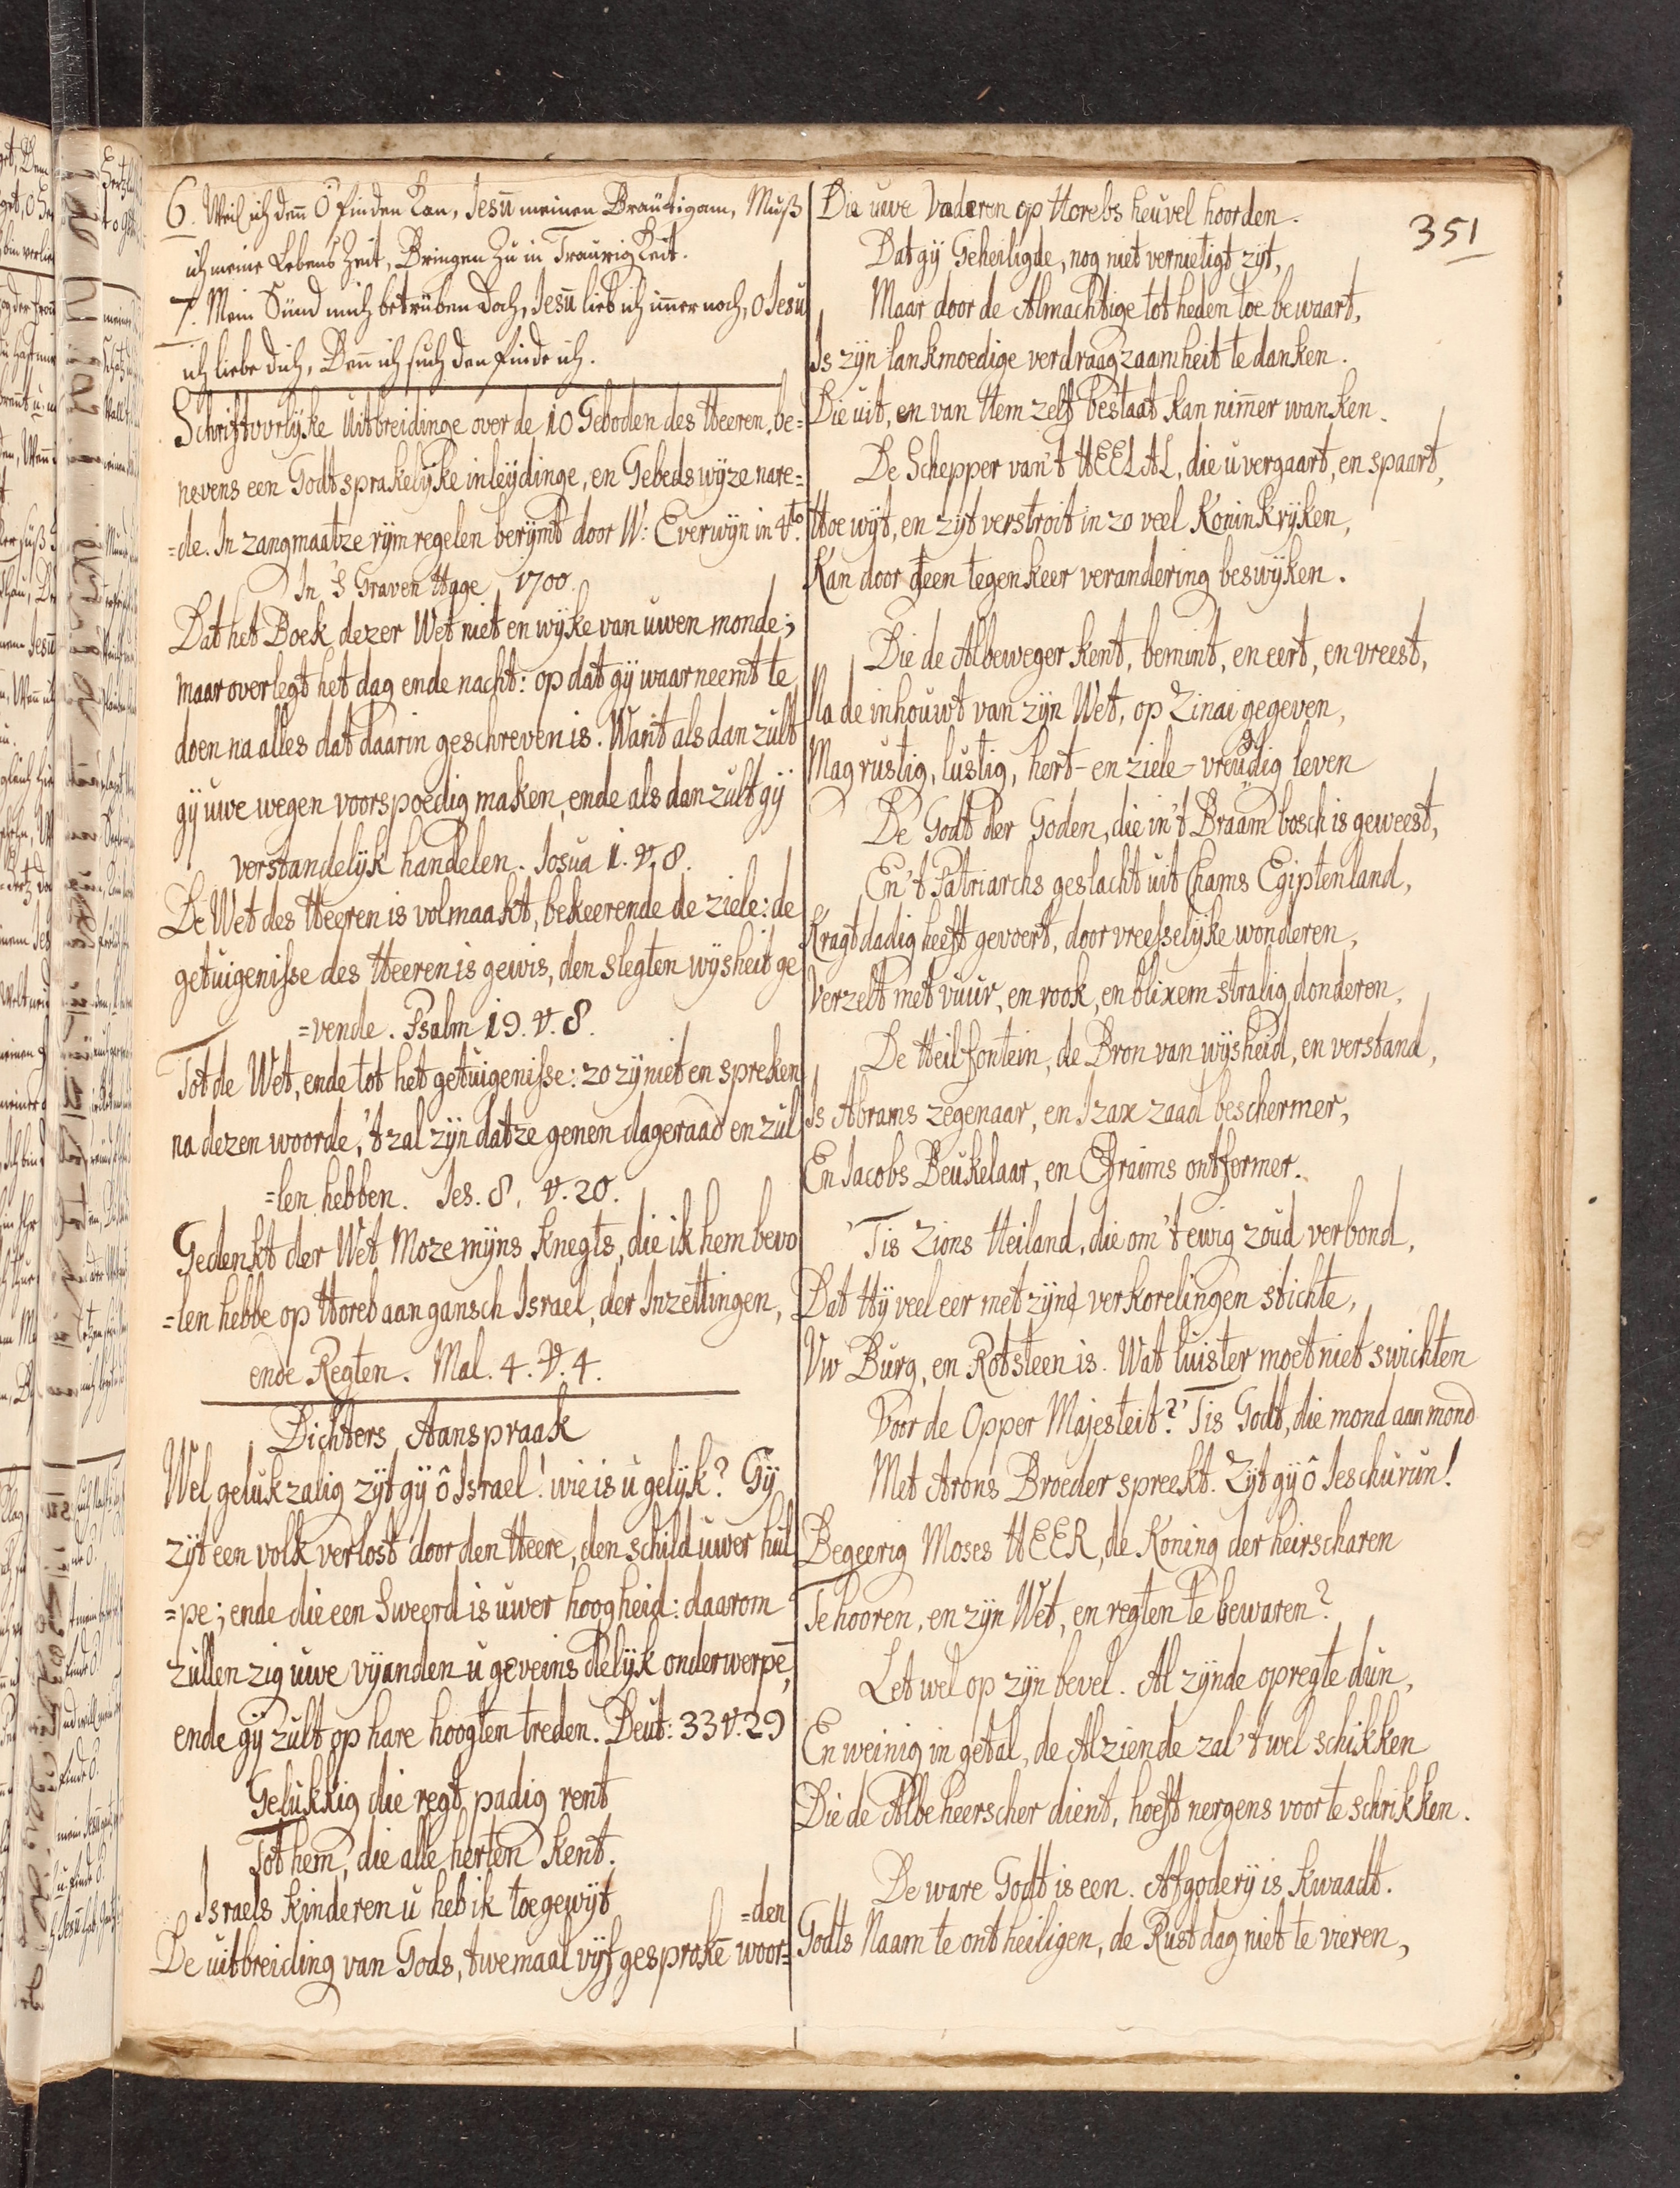 351
6. Weil ich denn Ô finden kan, Jesu meinen Bräutigam, Muß
ich meine Lebens Zeit, Bringen Zu in Traurigkeit.
7. Mein Sünd mich betrüben doch, Jesu lieb ich immer noch, O Jesu
ich liebe dich, Denn ich such den finde ich.
Schriftuurlyke Uitbreidinge over de 10 Geboden des Heeren, be=
nevens een Godtsprakelijke inleijdinge, en Gebedswyze nare=
=de. In zangmaatze rijm regelen berijmt door W: Everwijn in 4to.
In 's Graven Hage 1700.
Dat het Boek dezer Wet niet en wijke van uwen monde;
maar overlegt het dag ende nacht: op dat gij waarneemt te
doen na alles dat daarin geschreven is. Want als dan zult
gij uwe wegen voorspoedig maken, ende als dan zult gij
verstandelijk handelen. Josua 1. v. 8.
De Wet des Heeren is volmaakt, bekeerende de ziele: de
getuigenisse des Heeren is gewis, den slegten wijsheit ge
=vende. Psalm 19. v. 8.
Tot de Wet, ende tot het getuigenisse: zo zij niet en spreken
na dezen woorde, 't zal zijn datze genen dageraad en zul
=len hebben. Jes. 8. v. 20.
Gedenkt der Wet Moze mijns knegts, die ik hem bevo
=len hebbe op Horeb aan gansch Israel, der Inzettingen,
ende Regten. Mal. 4. v. 4.
Dichters Aanspraak
Wel gelukzalig zijt gij ô Israel! wie is u gelijk? Gij
zijt een volk verlost door den Heere, den schild uwer hul
=pe; ende die een Sweerd is uwer hoogheid: daarom
zullen zig uwe vijanden u geveinsdelijk onderwerpē,
ende gij zult op hare hoogten treden. Deut: 33 v. 29
Gelukkig die regt padig rent
Tot hem, die alle herten kent.
Israels kinderen u heb ik toegewijt
De uitbreiding van Gods, twemaal vijf gesprokē woor=
=den
Die uwe Vaderen op Horebs heuvel hoorden.
Dat gij Geheiligde, nog niet vernietigt zijt,
Maar door de Almachtige tot heden toe bewaart,
Is zijn lankmoedige verdraagzaamheit te danken.
Die uit, en van Hem zelf bestaat kan nimmer wanken.
De Schepper van't HEELAL, die u vergaart, en spaart,
Hoe wijt, en zijt verstroit in zo veel Koninkrijken,
Kan door geen tegenkeer verandering beswijken.
Die de Albeweger kent, bemint, en eert, en vreest,
Na de inhouwt van zijn Wet, op Zinai gegeven,
Mag rustig, lustig, hert- en ziele-vreudig leven
De Godt der Goden, die in't Braambosch is geweest,
En't Patriarchs geslacht uit Chams Egiptenland,
Kragtdadig heeft gevoert, door vreesselijke wonderen,
Verzelt met vuur, en rook, en blixem stralig donderen.
De Heilfontein, de Bron van wijsheid, en verstand,
Is Abrams zegenaar, en Izax zaad beschermer,
En Jacobs Beukelaar, en Efraims ontfermer.
'Tis Zions Heiland, die om 't ewig zoud verbond,
Dat Hij veel eer met zijne verkorelingen stichte,
Uw Burg, en Rotsteen is. Wat luister moet niet swichten
Voor de Opper Majesteit? 'Tis Godt, die mond aan mond
Met Arons Broeder spreekt. Zijt gij ô Jeschurun!
Begeerig Moses HEER, de Koning der heirscharen
Te hooren, en zijn Wet, en regten te bewaren?
Let wel op zijn bevel. Al zijnde opregte dun,
En weinig in getal, de Alziende zal 't wel schikken
Die de Albeheerscher dient, hoeft nergens voor te schrikken.
De ware Godt is een. Afgoderij is kwaadt.
Godts Naam te ontheiligen, de Rustdag niet te vieren,